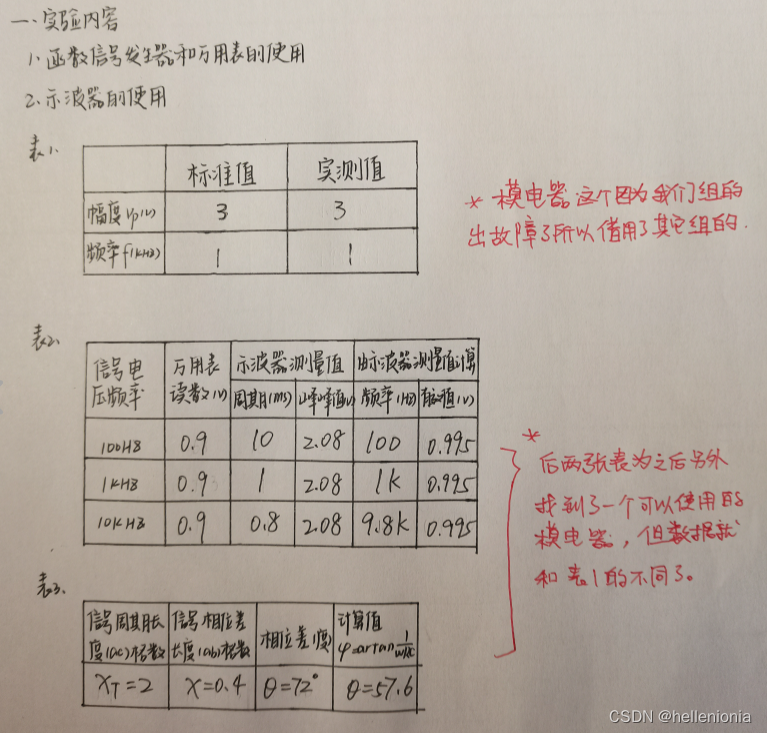 一、实验内容
1.函数信号发生器和万用表的使用
2.示波器的使用
表1.
标准值 实测值
幅度Vp(V) 3 3
频率f(KHz) 1 1
*模电器这个因为我们组的
出故障了所以借用了其它组的.
表2.
信号电压频率 万用表读数(V) 示波器测量值 由示波器测量值计算
周期(ms) 峰峰值(V) 频率(Hz) 有效值(V)
100HZ 0.9 10 2.08 100 0.995
1KHZ 0.9 1 2.08 1K 0.995
10KHZ 0.9 0.8 2.08 9.8K 0.995
*
后两张表为之后另外
找到了一个可以使用的
模电器，但数据就
和表1的不同了。
表3.
信号周期长 信号相位差 相位差(度) 计算值
度(ac)格数 长度(ab)格数 φ=artan 1/wRC
XT=2 X=0.4 θ=72° θ=57.6
CSDN @hellenionia